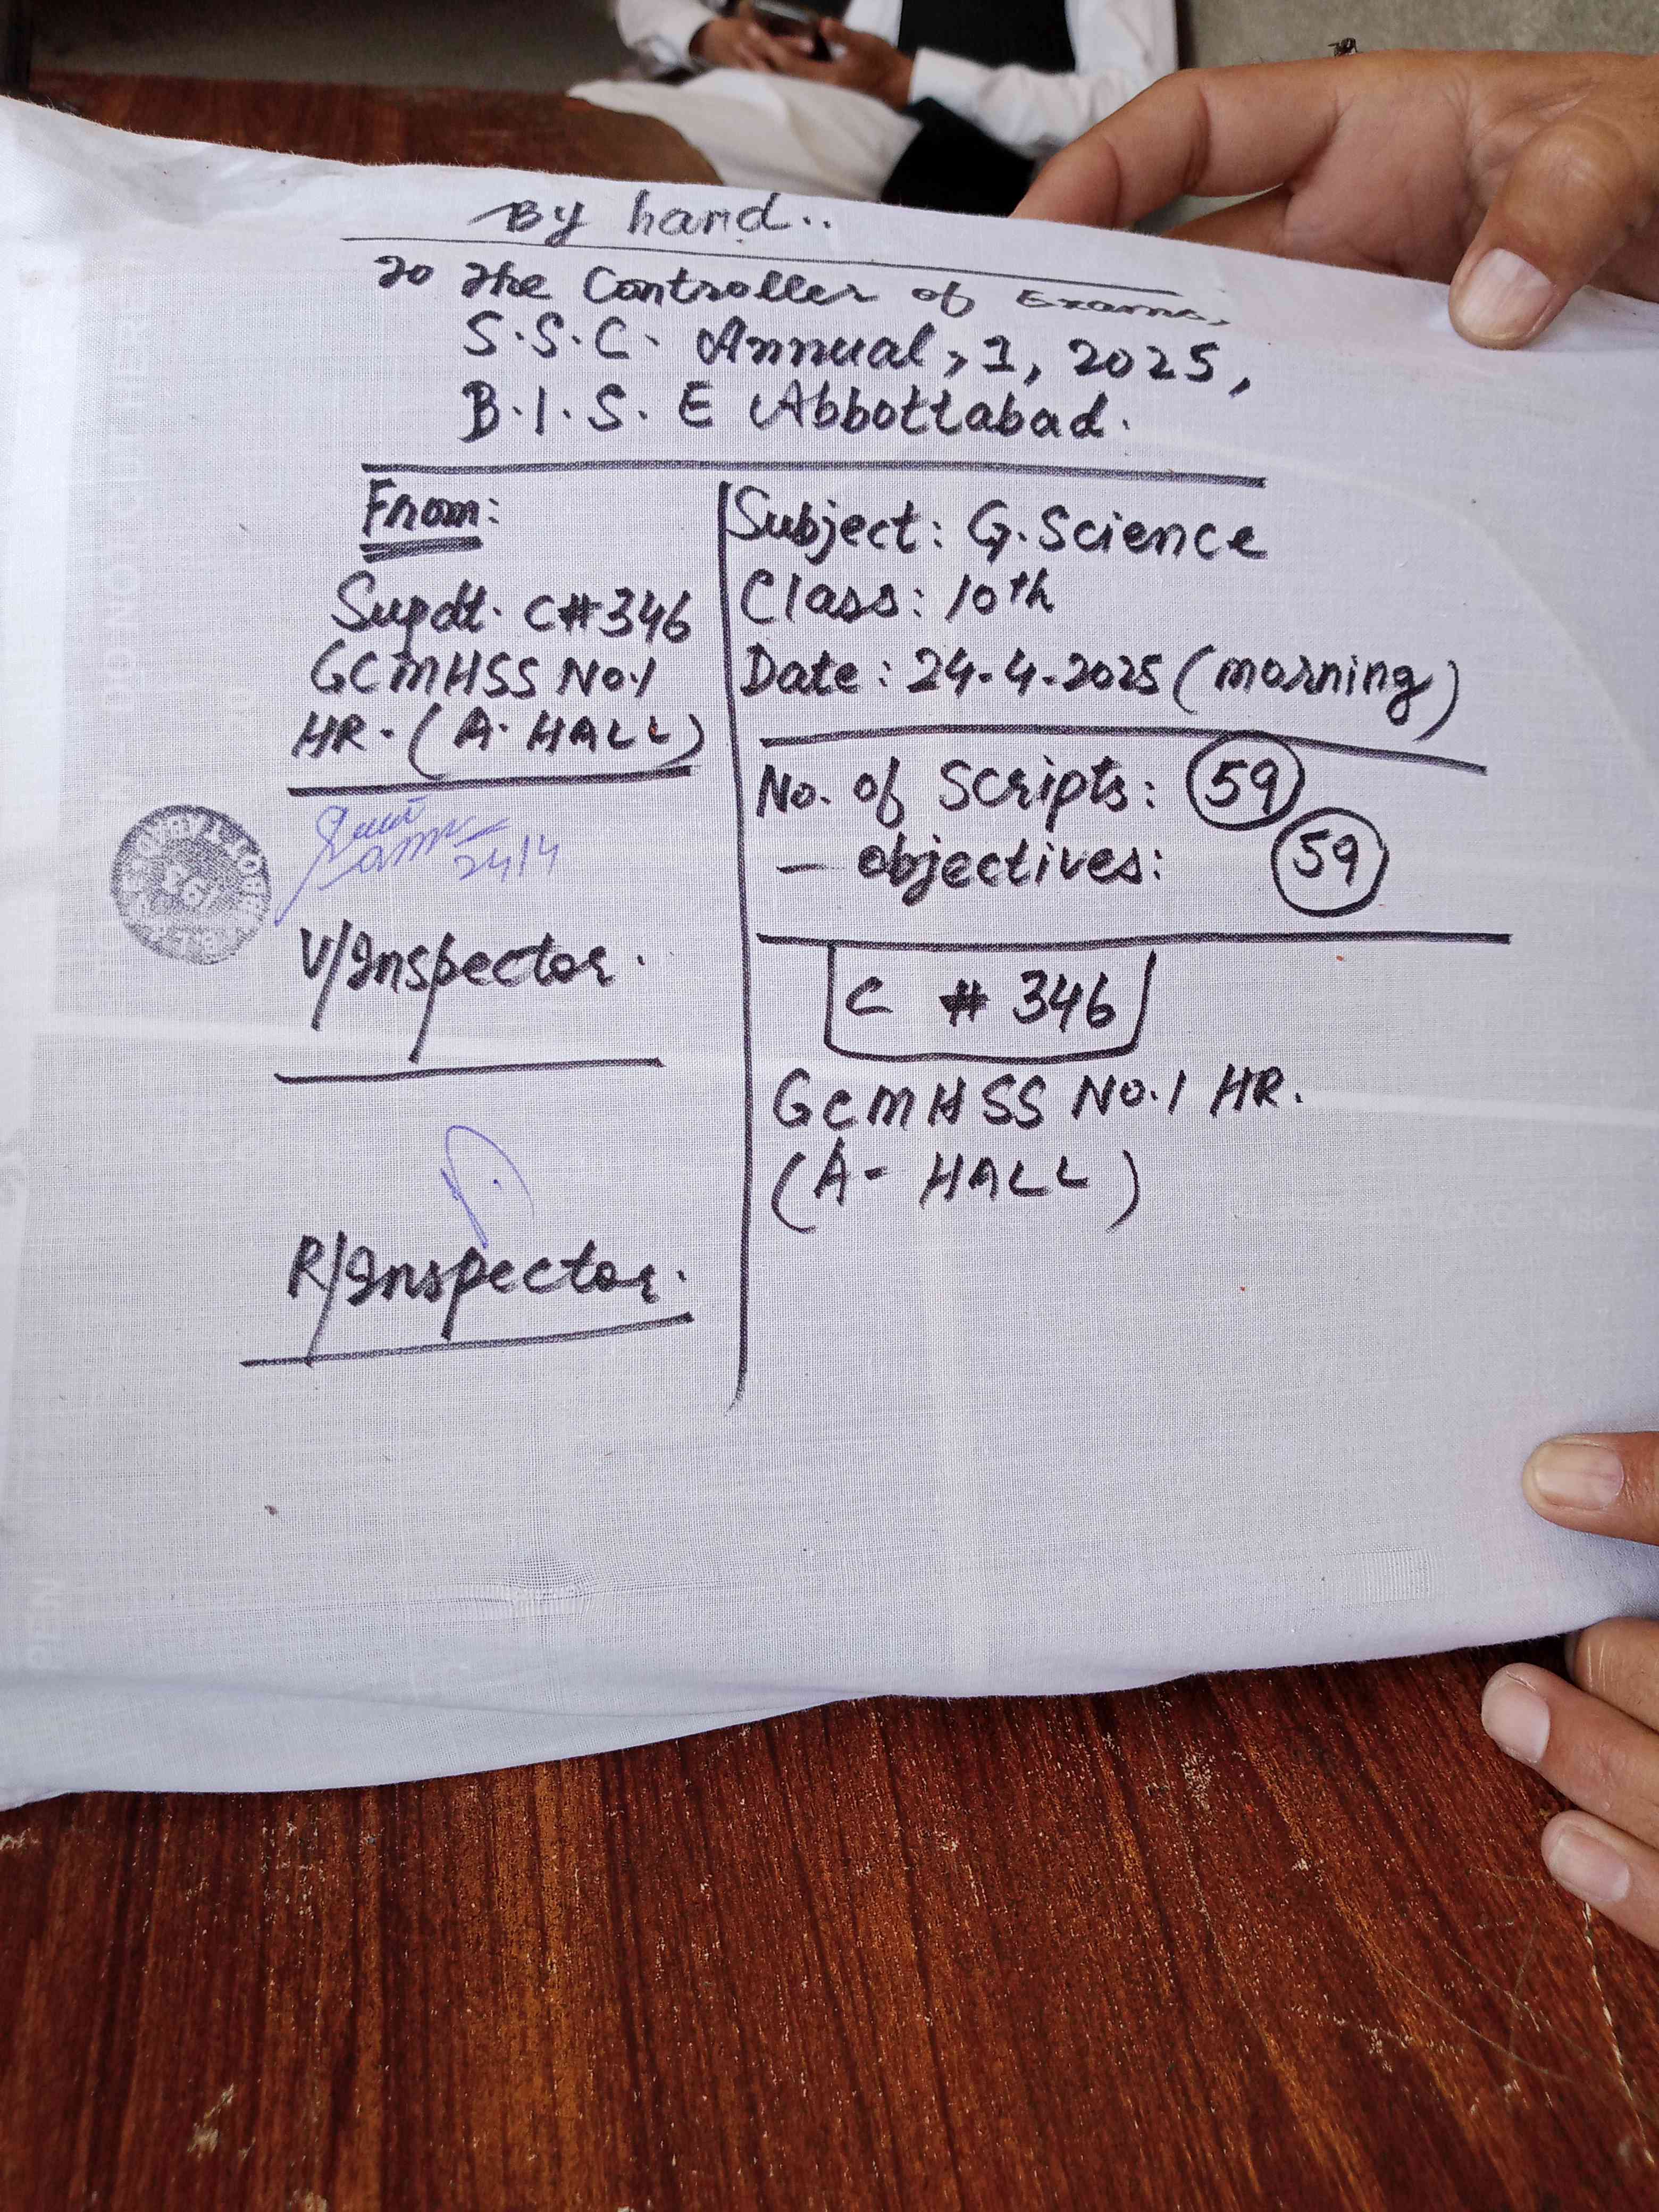 By hand..
To The Controller of Exams,
S.S.C. Annual, 1, 2025,
B.I.S.E Abbottabad.
From:
Supdt. C#346
GCMHSS No.1
HR. (A. HALL)
24/4
V/Inspector.
R/Inspector.
Subject: G.Science
Class: 10th
Date: 24.4.2025 (morning)
No. of Scripts: 59
— objectives: 59
C # 346
GCMHSS No.1 HR.
(A- HALL)